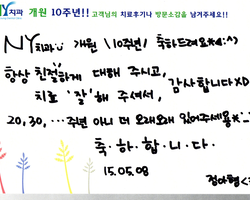 NY치과 개원 10주년!! 고객님의 치료후기나 방문소감을 남겨주세요!!
NY치과 개원 10주년! 축하드려요*^^
항상 친절하게 대해 주시고,
치료 '잘' 해 주셔서, 감사합니다XD
20, 30, … 주년 아니 더 오래오래 있어주세용*^_^
축·하·합·니·다.
15.05.08